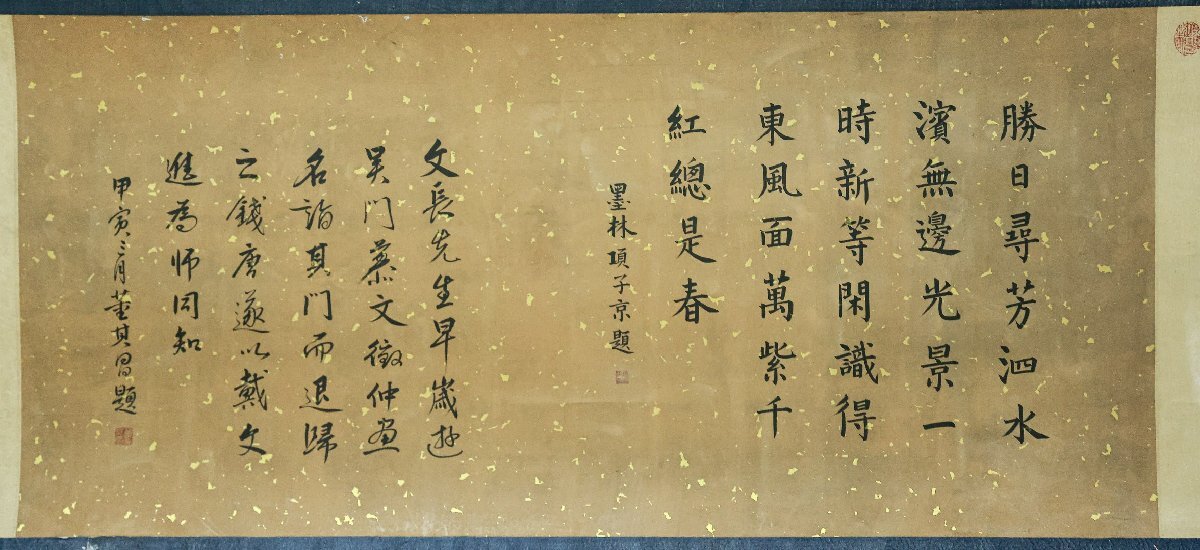 勝日尋芳泗水
濱無邊光景一
時新等閑識得
東風面萬紫千
紅總是春
墨林項子京題
文長先生早歲遊
吳門慕文徵仲畫
名詣其門而退歸
之錢唐遂以戴文
進為師同知
甲寅三月董其昌題